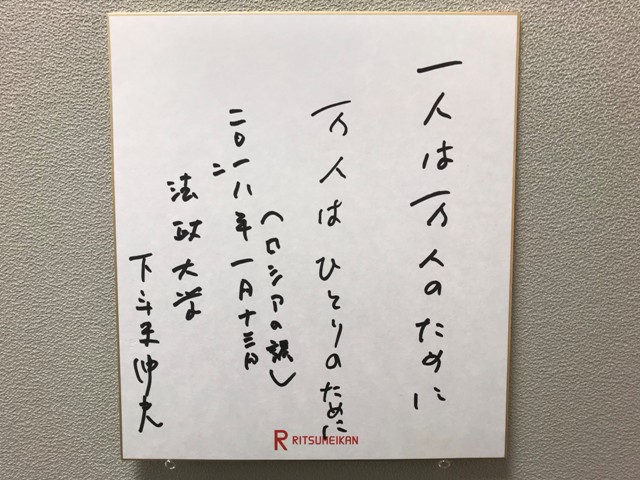 一人は万人のために
万人はひとりのために
(ロシアの諺)
二〇一八年一月十三日
法政大学
下斗米伸夫
R RITSUMEIKAN